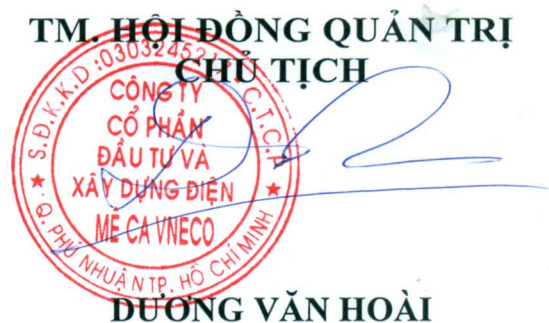 TM. HỘI ĐỒNG QUẢN TRỊ
CHỦ TỊCH
S.Đ.K.K.D
C.T.C.P
CÔNG TY
CỔ PHẦN
ĐẦU TƯ VÀ
XÂY DỰNG ĐIỆN
MÊ CA VNECO
Q. PHÚ NHUẬN TP. HỒ CHÍ MINH
DƯƠNG VĂN HOÀI